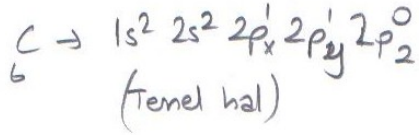 ₆C → 1s² 2s² 2pₓ¹ 2pᵧ¹ 2p₂⁰
(Temel hal)